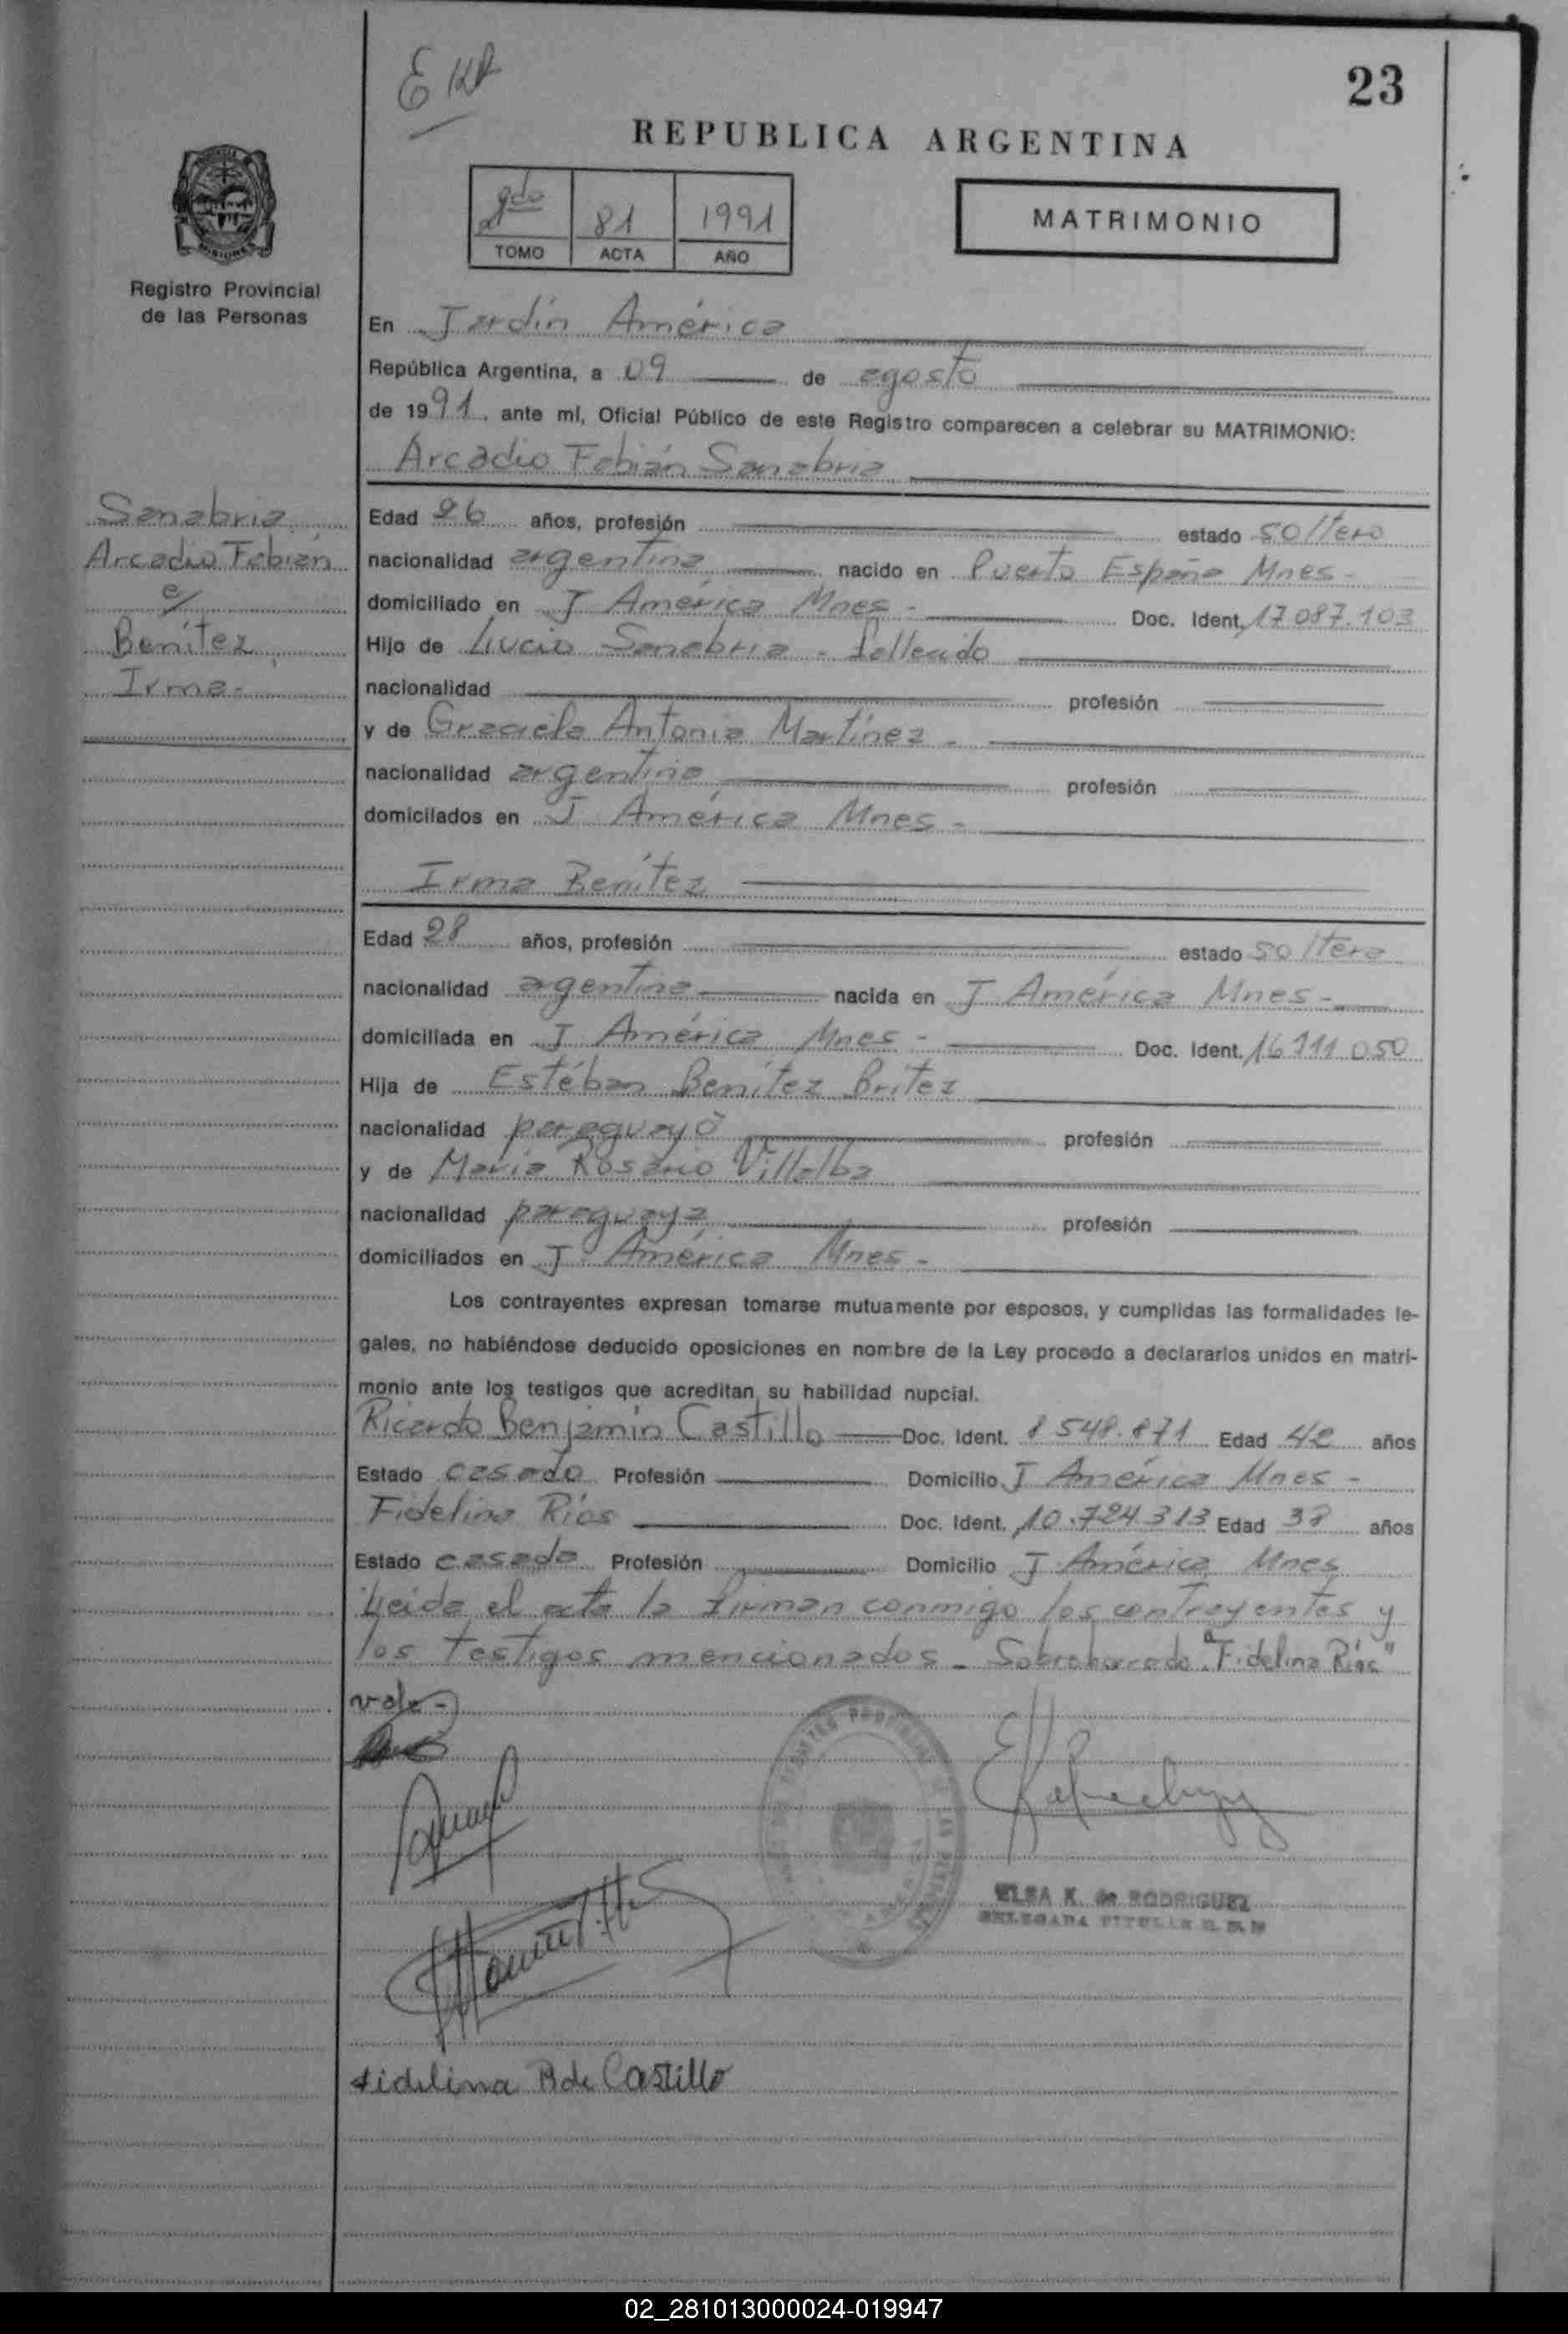 23
REPUBLICA ARGENTINA
2do 81 1991
TOMO ACTA AÑO
MATRIMONIO
Registro Provincial
de las Personas
En Jardín América
República Argentina, a 09 de agosto
de 1991, ante mí, Oficial Público de este Registro comparecen a celebrar su MATRIMONIO:
Arcadio Fabián Sanabria
Sanabria
Arcadio Fabián
c/
Benítez
Irma.
Edad 26 años, profesión estado soltero
nacionalidad argentina nacido en Puerto España Mnes-
domiciliado en J América Mnes - Doc. Ident. 17.087.103
Hijo de Lucio Sanabria - fallecido
nacionalidad profesión
y de Graciela Antonia Martínez -
nacionalidad argentina profesión
domiciliados en J América Mnes -
Irma Benítez
Edad 28 años, profesión estado soltera
nacionalidad agentina nacida en J América Mnes -
domiciliada en J América Mnes - Doc. Ident. 16 111 050
Hija de Estéban Benítez Brítez
nacionalidad paraguayo profesión
y de María Rosario Villalba
nacionalidad paraguaya profesión
domiciliados en J América Mnes -
Los contrayentes expresan tomarse mutuamente por esposos, y cumplidas las formalidades le-
gales, no habiéndose deducido oposiciones en nombre de la Ley procedo a declararlos unidos en matri-
monio ante los testigos que acreditan su habilidad nupcial.
Ricardo Benjamín Castillo Doc. Ident. 8 548.871 Edad 42 años
Estado casado Profesión Domicilio J América Mnes -
Fidelina Ríos Doc. Ident. 10.724.313 Edad 38 años
Estado casada Profesión Domicilio J América Mnes
Leída el acta la firman conmigo los contrayentes y
los testigos mencionados - Sobreborrado "Fidelina Ríos"
vale -
ELSA K. de RODRIGUEZ
DELEGADA TITULAR
Fidelina R de Castillo
02_281013000024-019947